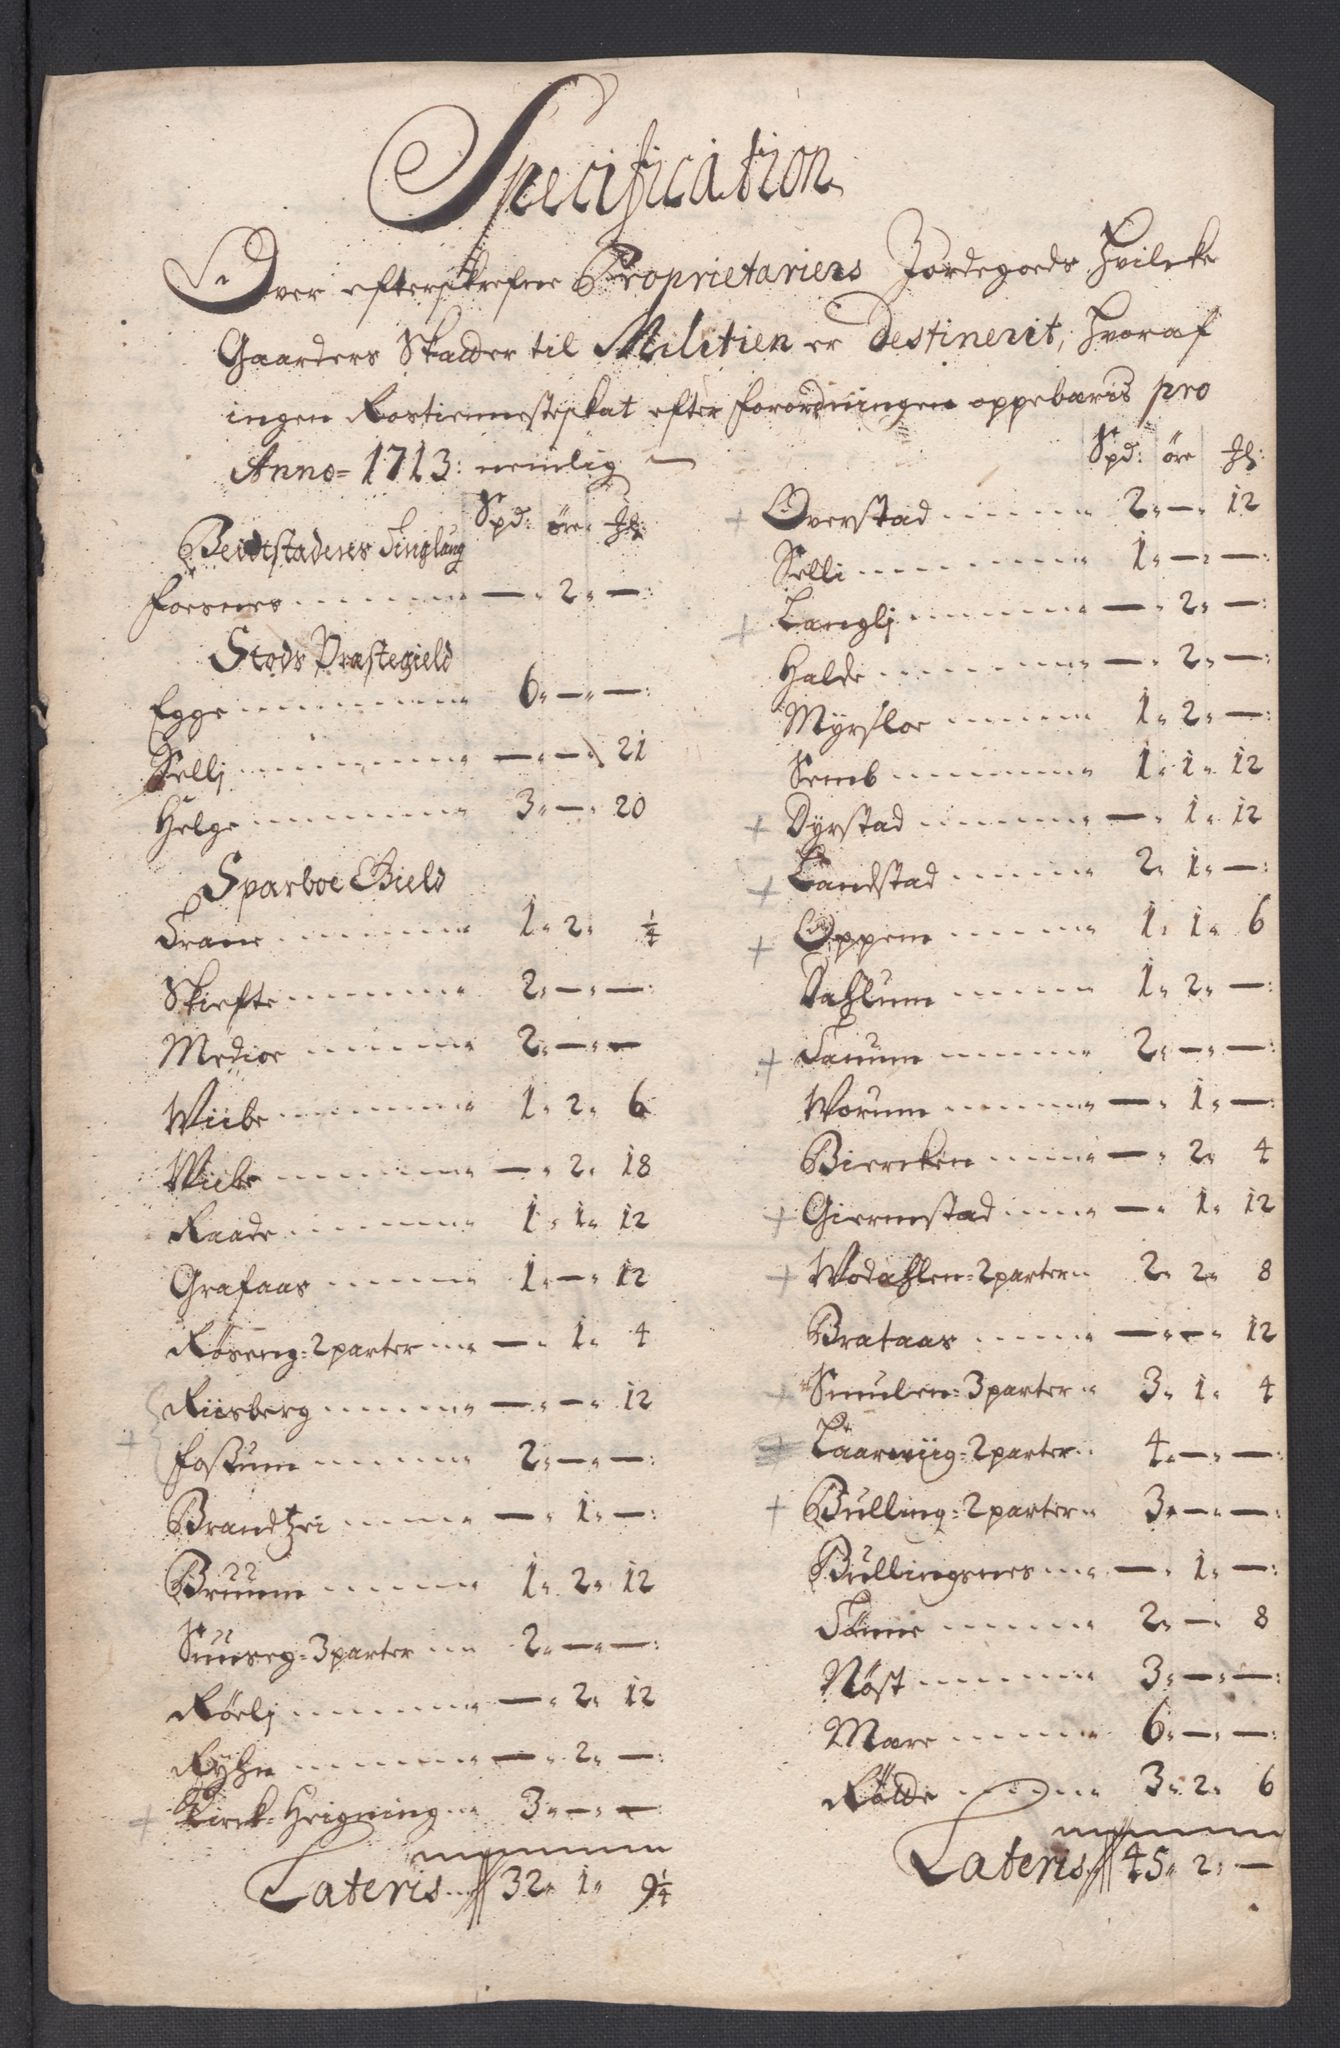 Specification
Over efterskrefne Proprietariers Jordegoeds Hvilcke
Gaarders Skatter til Militien er Destinerit, Hvoraf
ingen Rostienneste skat efter forordningen oppebæris pro
Anno= 1713: nemlig —
Spd: öre ℳl:
Beidtstadens Tinglaug
Foesnes — 2 —
Stods Præstegield
Egge 6 — —
Sellj — — 21
Helge 3 — 20
Sparboe Gield
Trane 1 2 ¼
Skiefte 2 — —
Medioe 2 — —
Wiibe 1 2 6
Wiibe — 2 18
Raade 1 1 12
Grafaas 1 — 12
Røseng=2parter — 1 4
+ Riisberg — — 12
Fossum 2 — —
Brandtzei — 1 —
Bruum 1 2 12
Suuseg=3parter 2 — —
Röelj — 2 12
Ryhn — 2 —
+ Kirck=Heigning 3 — —
Lateris 32 1 9¼
Spd: öre ℳl:
+ Overstad 2 — 12
Selli 1 — —
+ Langlj — 2 —
Halde — 2 —
Myrsloe 1 2 —
Semb 1 1 12
+ Dyrstad — 1 12
+ Landstad 2 1 —
+ Oppem 1 1 6
Dahlum 1 2 —
+ Tanum 2 — —
Worum — 1 —
Biercken — 2 4
+ Giermstad — 1 12
+ Wodahlen=2parter 2 2 8
Brataas — — 12
+ Smulen=3parter 3 1 4
+ Laarwiig=2parter 4 — —
+ Bulling=2parter 3 — —
Bullingsnes — 1 —
Tönne 2 — 8
Nöst 3 — —
Mære 6 — —
Rölde 3 2 6
Lateris 45 2 —